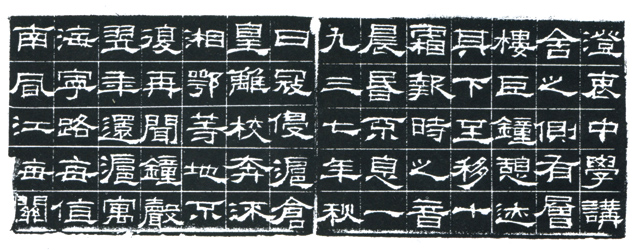 澄衷中學講
舍之側有層
樓巨鐘憩
其下至移十
霜報時之音
晨昏不息一
九三七年秋
日寇侵滬倉
皇離校奔
湘鄂等地不
復再聞鐘聲
翌年還滬寓
海寧路每值
南風江海關